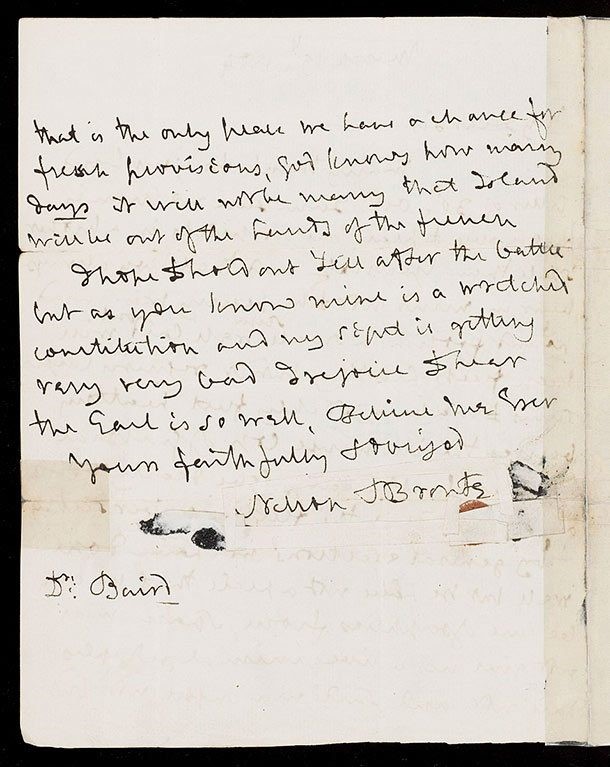 that is the only place we have a chance for
fresh provisions, God knows how many
days it will not be many that Island
will be out of the hands of the french
I hope to hold out till after the battle
but as you know mine is a wretched
constitution and my sight is getting
very very bad I rejoice to hear
the Earl is so well, Believe me Ever
Yours faithfully & obliged
Nelson & Bronte
Dr: Baird